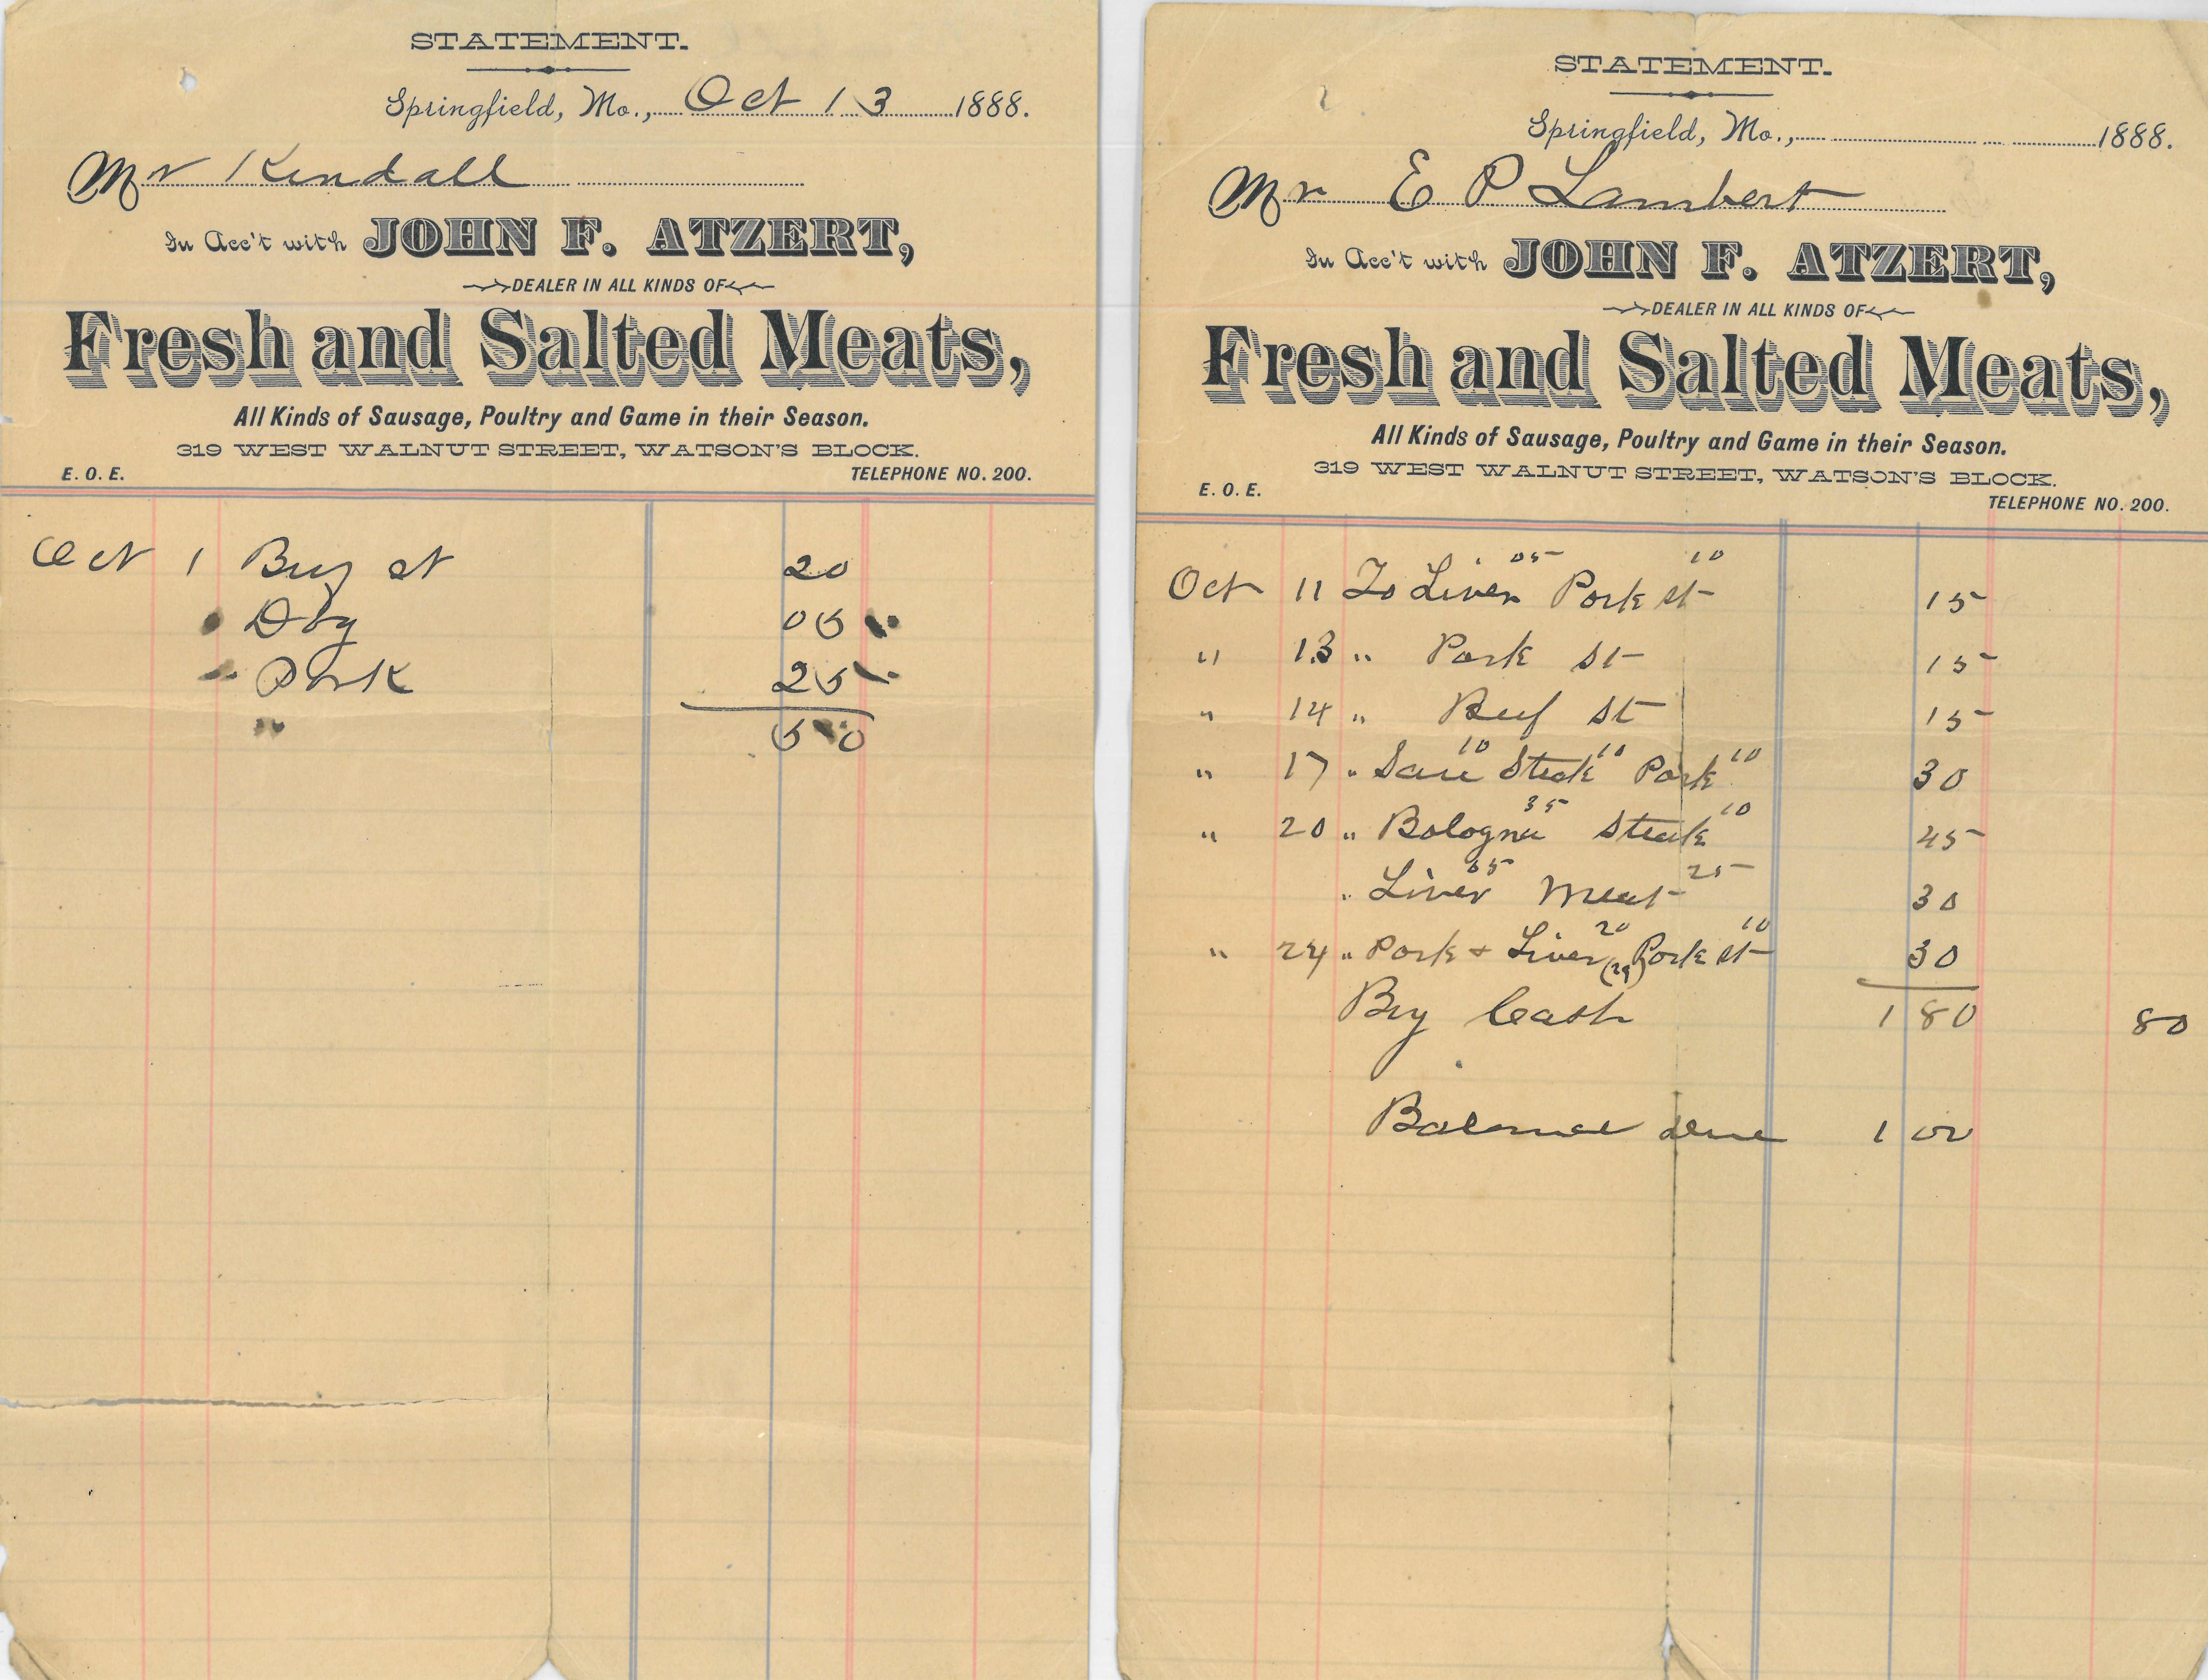 STATEMENT.
Springfield, Mo., Oct 13 1888.
Mr Kendall
In Acc't with JOHN F. ATZERT,
DEALER IN ALL KINDS OF
Fresh and Salted Meats,
All Kinds of Sausage, Poultry and Game in their Season.
319 WEST WALNUT STREET, WATSON'S BLOCK.
E. O. E. TELEPHONE NO. 200.
Oct 1 st 20
05
Pork 25
" 50
STATEMENT.
Springfield, Mo., 1888.
Mr E P Lambert
In Acc't with JOHN F. ATZERT,
DEALER IN ALL KINDS OF
Fresh and Salted Meats,
All Kinds of Sausage, Poultry and Game in their Season.
319 WEST WALNUT STREET, WATSON'S BLOCK.
E. O. E. TELEPHONE NO. 200.
Oct 11 To Liver 05 Pork st 10 15
" 13 " Pork st 15
" 14 " Beef st 15
" 17 " 10 Steak 10 Pork 10 30
" 20 " Bologna 35 Steak 10 45
" Liver 05 Meat 25 30
" 24 " Pork + Liver 20 Pork st 10 30
By Cash 1 80 80
Balance due 1 00